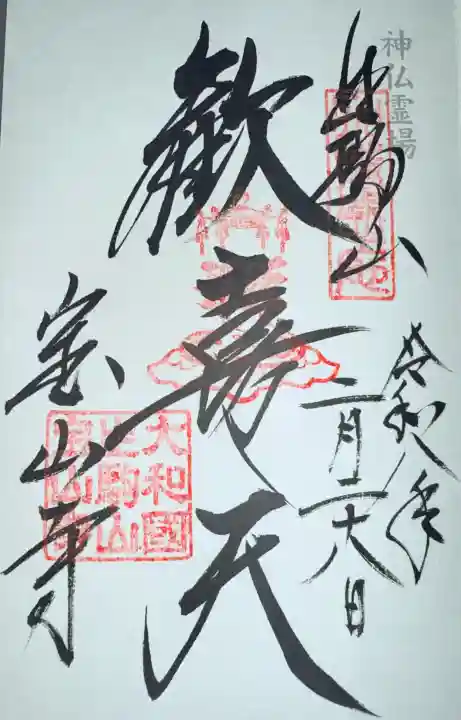 神仏霊場
生駒山
令和八年
二月二十八日
歓喜天
宝山寺
大和國
生駒山
寳山寺